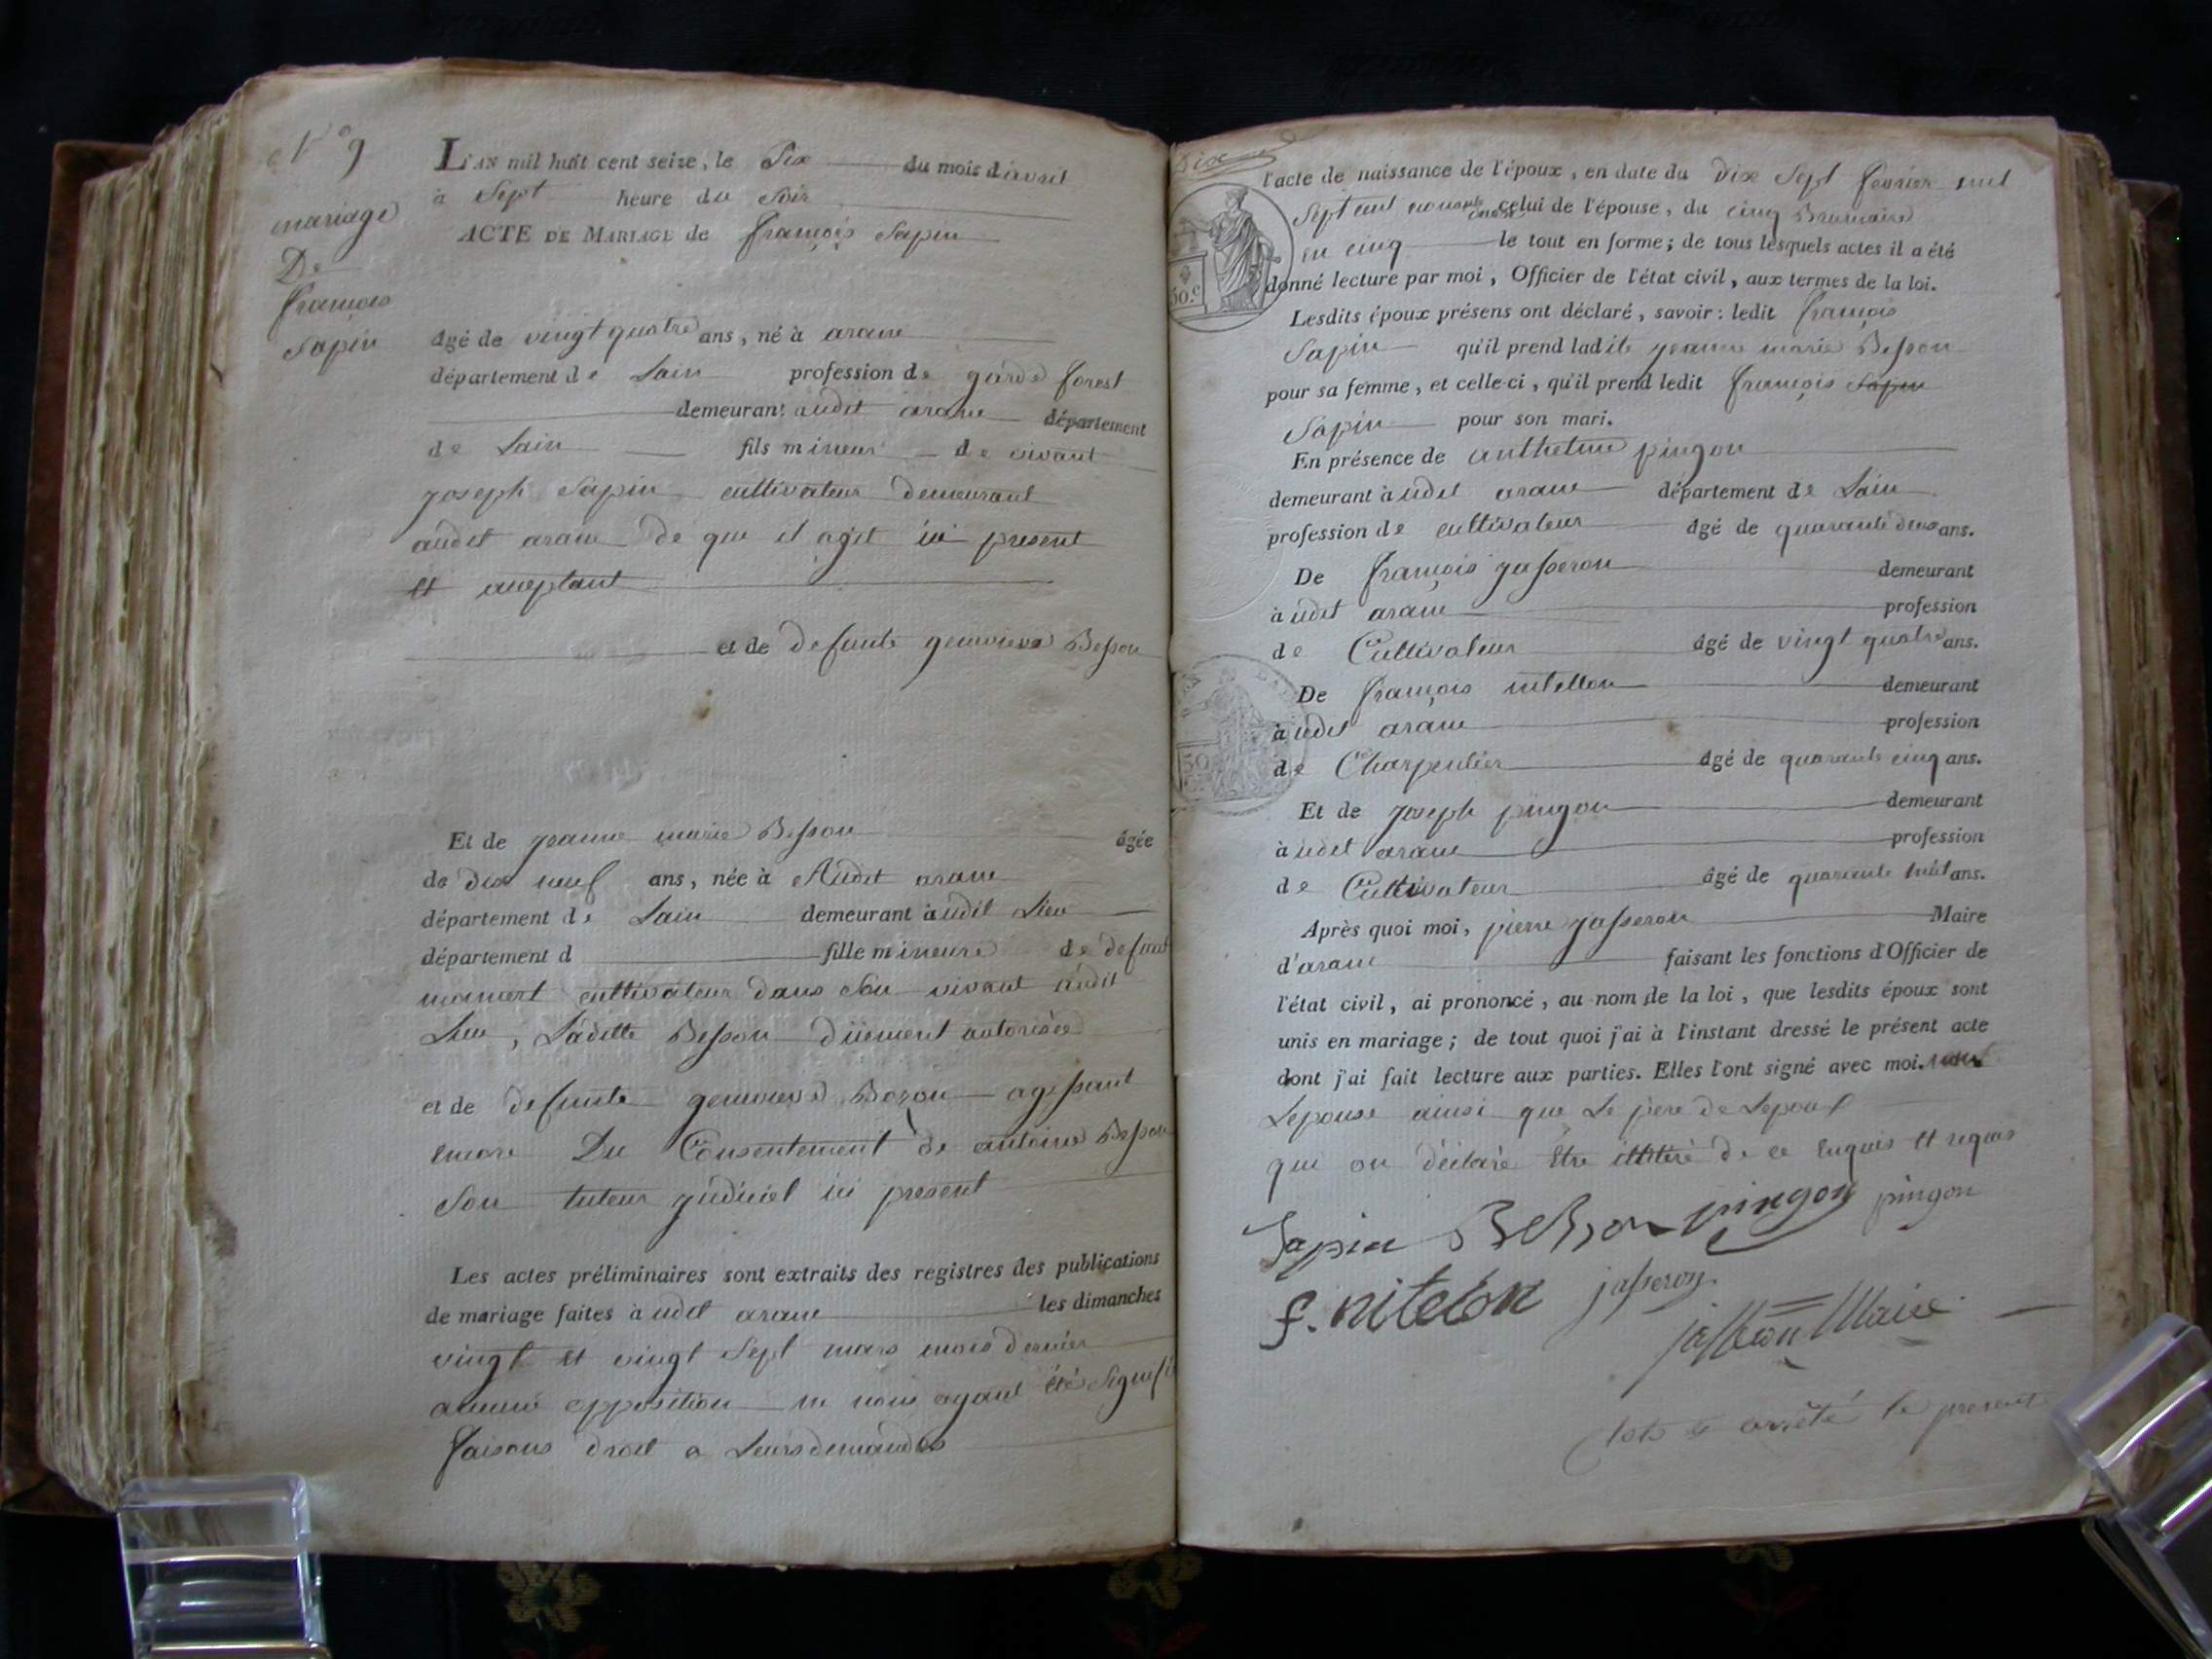 N° 9
mariage
De
françois
Sapin
L'AN mil huit cent seize, le Six du mois d'avril
à Sept heure du Soir
ACTE DE MARIAGE de françois Sapin
âgé de vingt quatre ans, né à arane
département de Lain profession de garde forest
demeurant audit arane département
de Lain fils mineur de vivant
joseph Sapin cultivateur demeurant
audit arane de que il agit ici present
et aceptant
et de defunte genevieve Besson
Et de jeanne marie Besson âgée
de dix neuf ans, née à Audit arane
département de Lain demeurant àudit Lieu
département d fille mineure de defunt
cultivateur dans Son vivant audit
Lieu, Laditte Besson düement autorisée
et de defunte genevieve Bozon agissant
encore Du Consentement de antoine Besson
Son tuteur judiciel ici present
Les actes préliminaires sont extraits des registres des publications
de mariage faites à udit arane les dimanches
vingt et vingt Sept mars mois dernier
aucune opposition ne nous ayant été Signifié
faisons droit a Leurs demandes
l'acte de naissance de l'époux, en date du Dix Sept fevrier mil
Sept cent nonante onze celui de l'épouse, du cinq Brumaire
en cinq le tout en forme; de tous lesquels actes il a été
donné lecture par moi, Officier de l'état civil, aux termes de la loi.
50.c
Lesdits époux présens ont déclaré, savoir: ledit françois
Sapin qu'il prend ladite jeanne marie Besson
pour sa femme, et celle-ci, qu'il prend ledit françois Sapin
Sapin pour son mari.
En présence de anthelme pingon
demeurant àudit arane département de Lain
profession de cultivateur âgé de quarante deux ans.
De françois jasseron demeurant
àudit arane profession
de Cultivateur âgé de vingt quatre ans.
De françois nitellon demeurant
àudit arane profession
de Charpentier âgé de quarante cinq ans.
Et de joseph pingon demeurant
àudit arane profession
de Cultivateur âgé de quarante huit ans.
Après quoi moi, pierre jasseron Maire
d'arane faisant les fonctions d'Officier de
l'état civil, ai prononcé, au nom de la loi, que lesdits époux sont
unis en mariage; de tout quoi j'ai à l'instant dressé le présent acte
dont j'ai fait lecture aux parties. Elles l'ont signé avec moi.
Lepouse ainsi que Le pere de Lepoux
qui on déclaré Etre illiteré de ce Enquis et requis
Sapin Besson pingon pingon
f. nitelon jasseron
jasseron Maire
Clots et arrêté le present